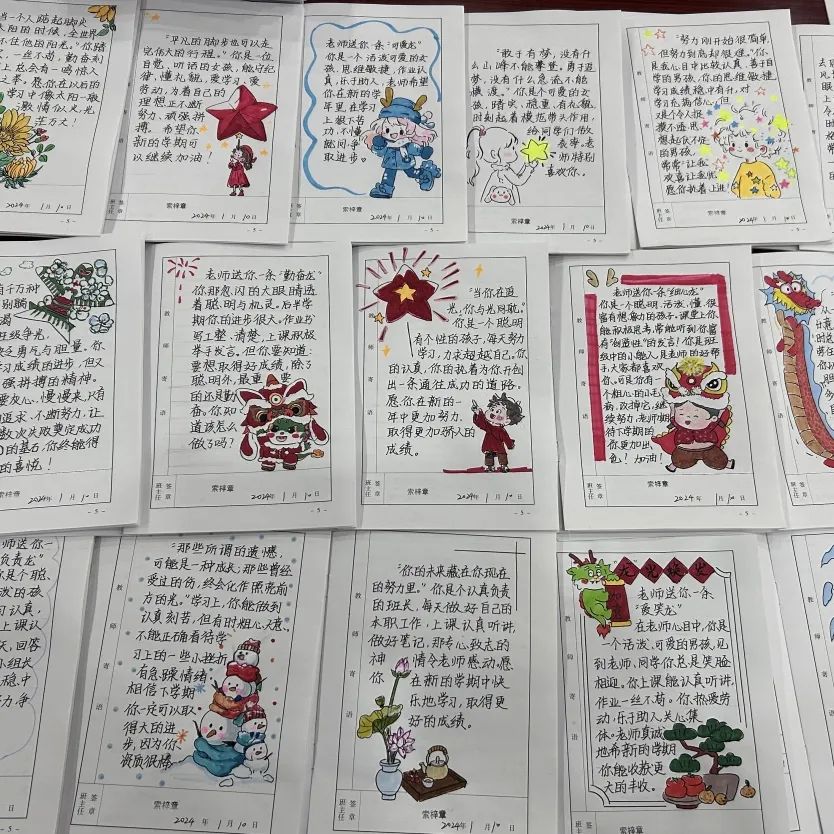 当一个人踮起脚尖
太阳的时候,全世界
不住他的阳光。”你踏
、一丝不苟,勤奋刻
上总会有一鸣惊人
之举。愿你在以后的
学习中像太阳一般
激情似火,光
芒万丈!
2024年 1月 10日
- 5 -
“平凡的脚步也可以走
完伟大的行程。”你是一位
自觉、听话的女孩,能守纪
律,懂礼貌,爱学习、爱
劳动,为着自己的
理想正不断
努力、顽强拼
搏。希望你
新的学期可
以继续加油!
班主任
签章
索梓章
2024年 1月 10日
- 5 -
老师送你一条“可爱龙”
你是一个活泼可爱的女
孩,思维敏捷,作业认
真,乐于助人,老师希望
你在新的学
年里,在学习
上狠下苦
功,不懂
就问,争
取进步。
索梓章
2024年 1月 10日
- 5 -
“敢于有梦,没有什
么山峰不能攀登;勇于追
梦,没有什么急流不能
横渡。”你是个可爱的女
孩,踏实、稳重、有礼貌,
时刻起着模范带头作用,
给同学们做
表率。老
师特别
喜欢你。
索梓章
2024年 1月 10日
- 5 -
“努力刚开始很简单,
但努力到底却很难。”你
是我心目中比较认真、善于自
学的男孩,你的思维敏捷,
学习成绩稳中有升,对
学习充满信心,但
又是个令人捉
摸不透,思
想起伏不定
的男孩,
常常“让我
欢喜让我忧”
愿你执着上进!
班主任
签章
索梓章
2024年 1月 10日
- 5 -
有千万种
别躺
渴
班级争光,
缺乏勇气与胆量。你
学习成绩的进步,但又
强拼搏的精神。
要灰心,慢慢来,只有
追求、不断努力,让
数次失败奠定成功
的基石,你终能得
的喜悦!
2024年 1月 10日
- 5 -
教师寄语
老师送你一条“勤奋龙”
你那忽闪的大眼睛透
着聪明与机灵。后半学
期你的进步很大。作业书
写工整、清楚,上课积极
举手发言。但你要知道:
要想取得好成绩,除了
聪明外,最重要
的还是勤
奋。你知
道该怎么
做了吗?
班主任
签章
索梓章
2024年 1月 10日
- 5 -
教师寄语
“当你在追
光,你与光同航。”
你是一个聪明
有个性的孩子,每天努力
学习,力求超越自己。你
的认真、你的执着为你开创
出一条通往成功的道路。
愿你在新的一
年中更加努力,
取得更加骄人的
成绩。
班主任
签章
索梓章
2024年 1月 10日
- 5 -
教师寄语
老师送你一条“细心龙”
你是一个聪明、活泼、懂事,很
富有想象力的孩子。课堂上你
能积极思考,常能听到你富
有创造性的发言!你是班
级中的小能人,是老师的好帮
手,大家都喜欢
你。可是你有一
个粗心的小毛
病,改掉它,继
续努力,老师期
待下学期的
你更加出
色!加油!
班主任
签章
索梓章
2024年 1月 10日
- 5 -
师送你一
负责龙”
你是个聪、
泼的孩
习认真,
上课认
天,回答
小组长
,稳中
力,争
月 10日
教师寄语
“那些所谓的遗憾,
可能是一种成长;那些曾经
受过的伤,终会化作照亮前
方的光。”学习上,你能做到
认真刻苦,但有时粗心大意、
不能正确看待学
习上的一些小挫折,
有急躁情绪。
相信下学期
你一定可以取
得大的进
步,因为你
资质很棒。
班主任
签章
索梓章
2024年 1月 10日
教师寄语
“你的未来藏在你现在
的努力里。”你是个认真负责
的班长,每天做好自己的
本职工作,上课认真听讲,
做好笔记,那专心致志的
神情令老师感动。愿
你在新的学期中快
乐地学习,取得更
好的成绩。
班主任
签章
索梓章
2024年 1月 10日
教师寄语
老师送你一条
“爱笑龙”
在老师心目中,你是
一个活泼、可爱的男孩,见
到老师、同学你总是笑脸
相迎。你上课能认真听讲,
作业一丝不苟。你热爱劳
动,乐于助人,关心集
体。老师真诚
地希新的学期
你能收获更
大的丰收。
班主任
签章
索梓章
2024年 1月 10日